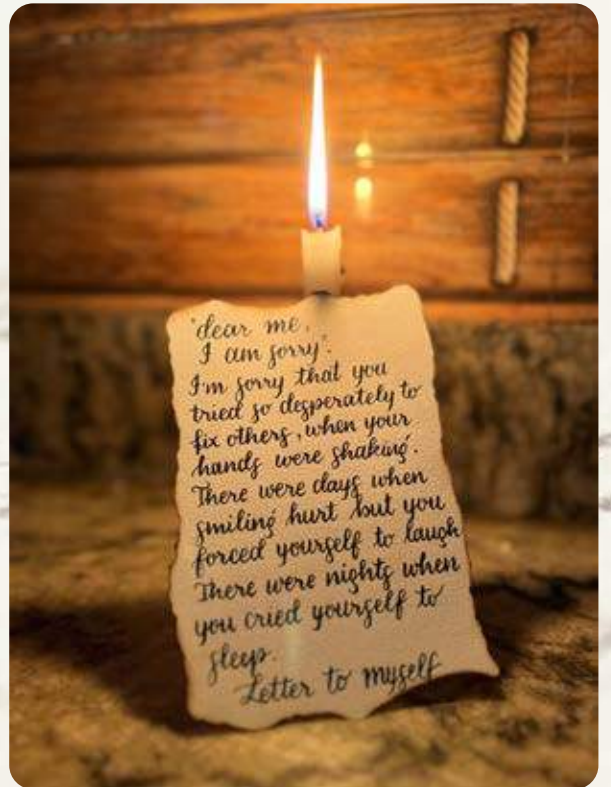 "dear me,
I am sorry".
I'm sorry that you
tried so desperately to
fix others, when your
hands were shaking.
There were days when
smiling hurt but you
forced yourself to laugh
There were nights when
you cried yourself to
sleep.
Letter to myself